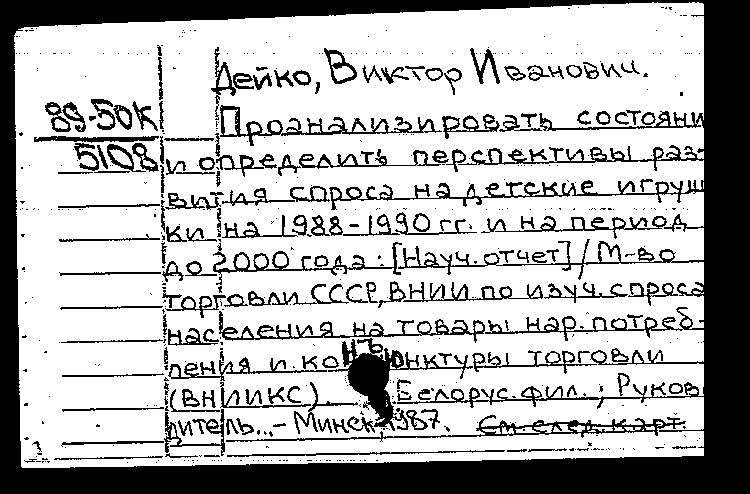 Дейко, Виктор Иванович.
89-50К
Проанализировать состояни
5108
и определить перспективы раз-
вития спроса на детские игруш
ки на 1988-1990 гг. и на период
до 2000 года : [Науч. отчет] / М-во
торговли СССР, ВНИИ по изуч. спроса
населения на товары нар. потреб-
ления и конъюнктуры торговли
(ВНИИКС). Белорус. фил. ; Руков
дитель... - Минск 1987. См. след. карт.